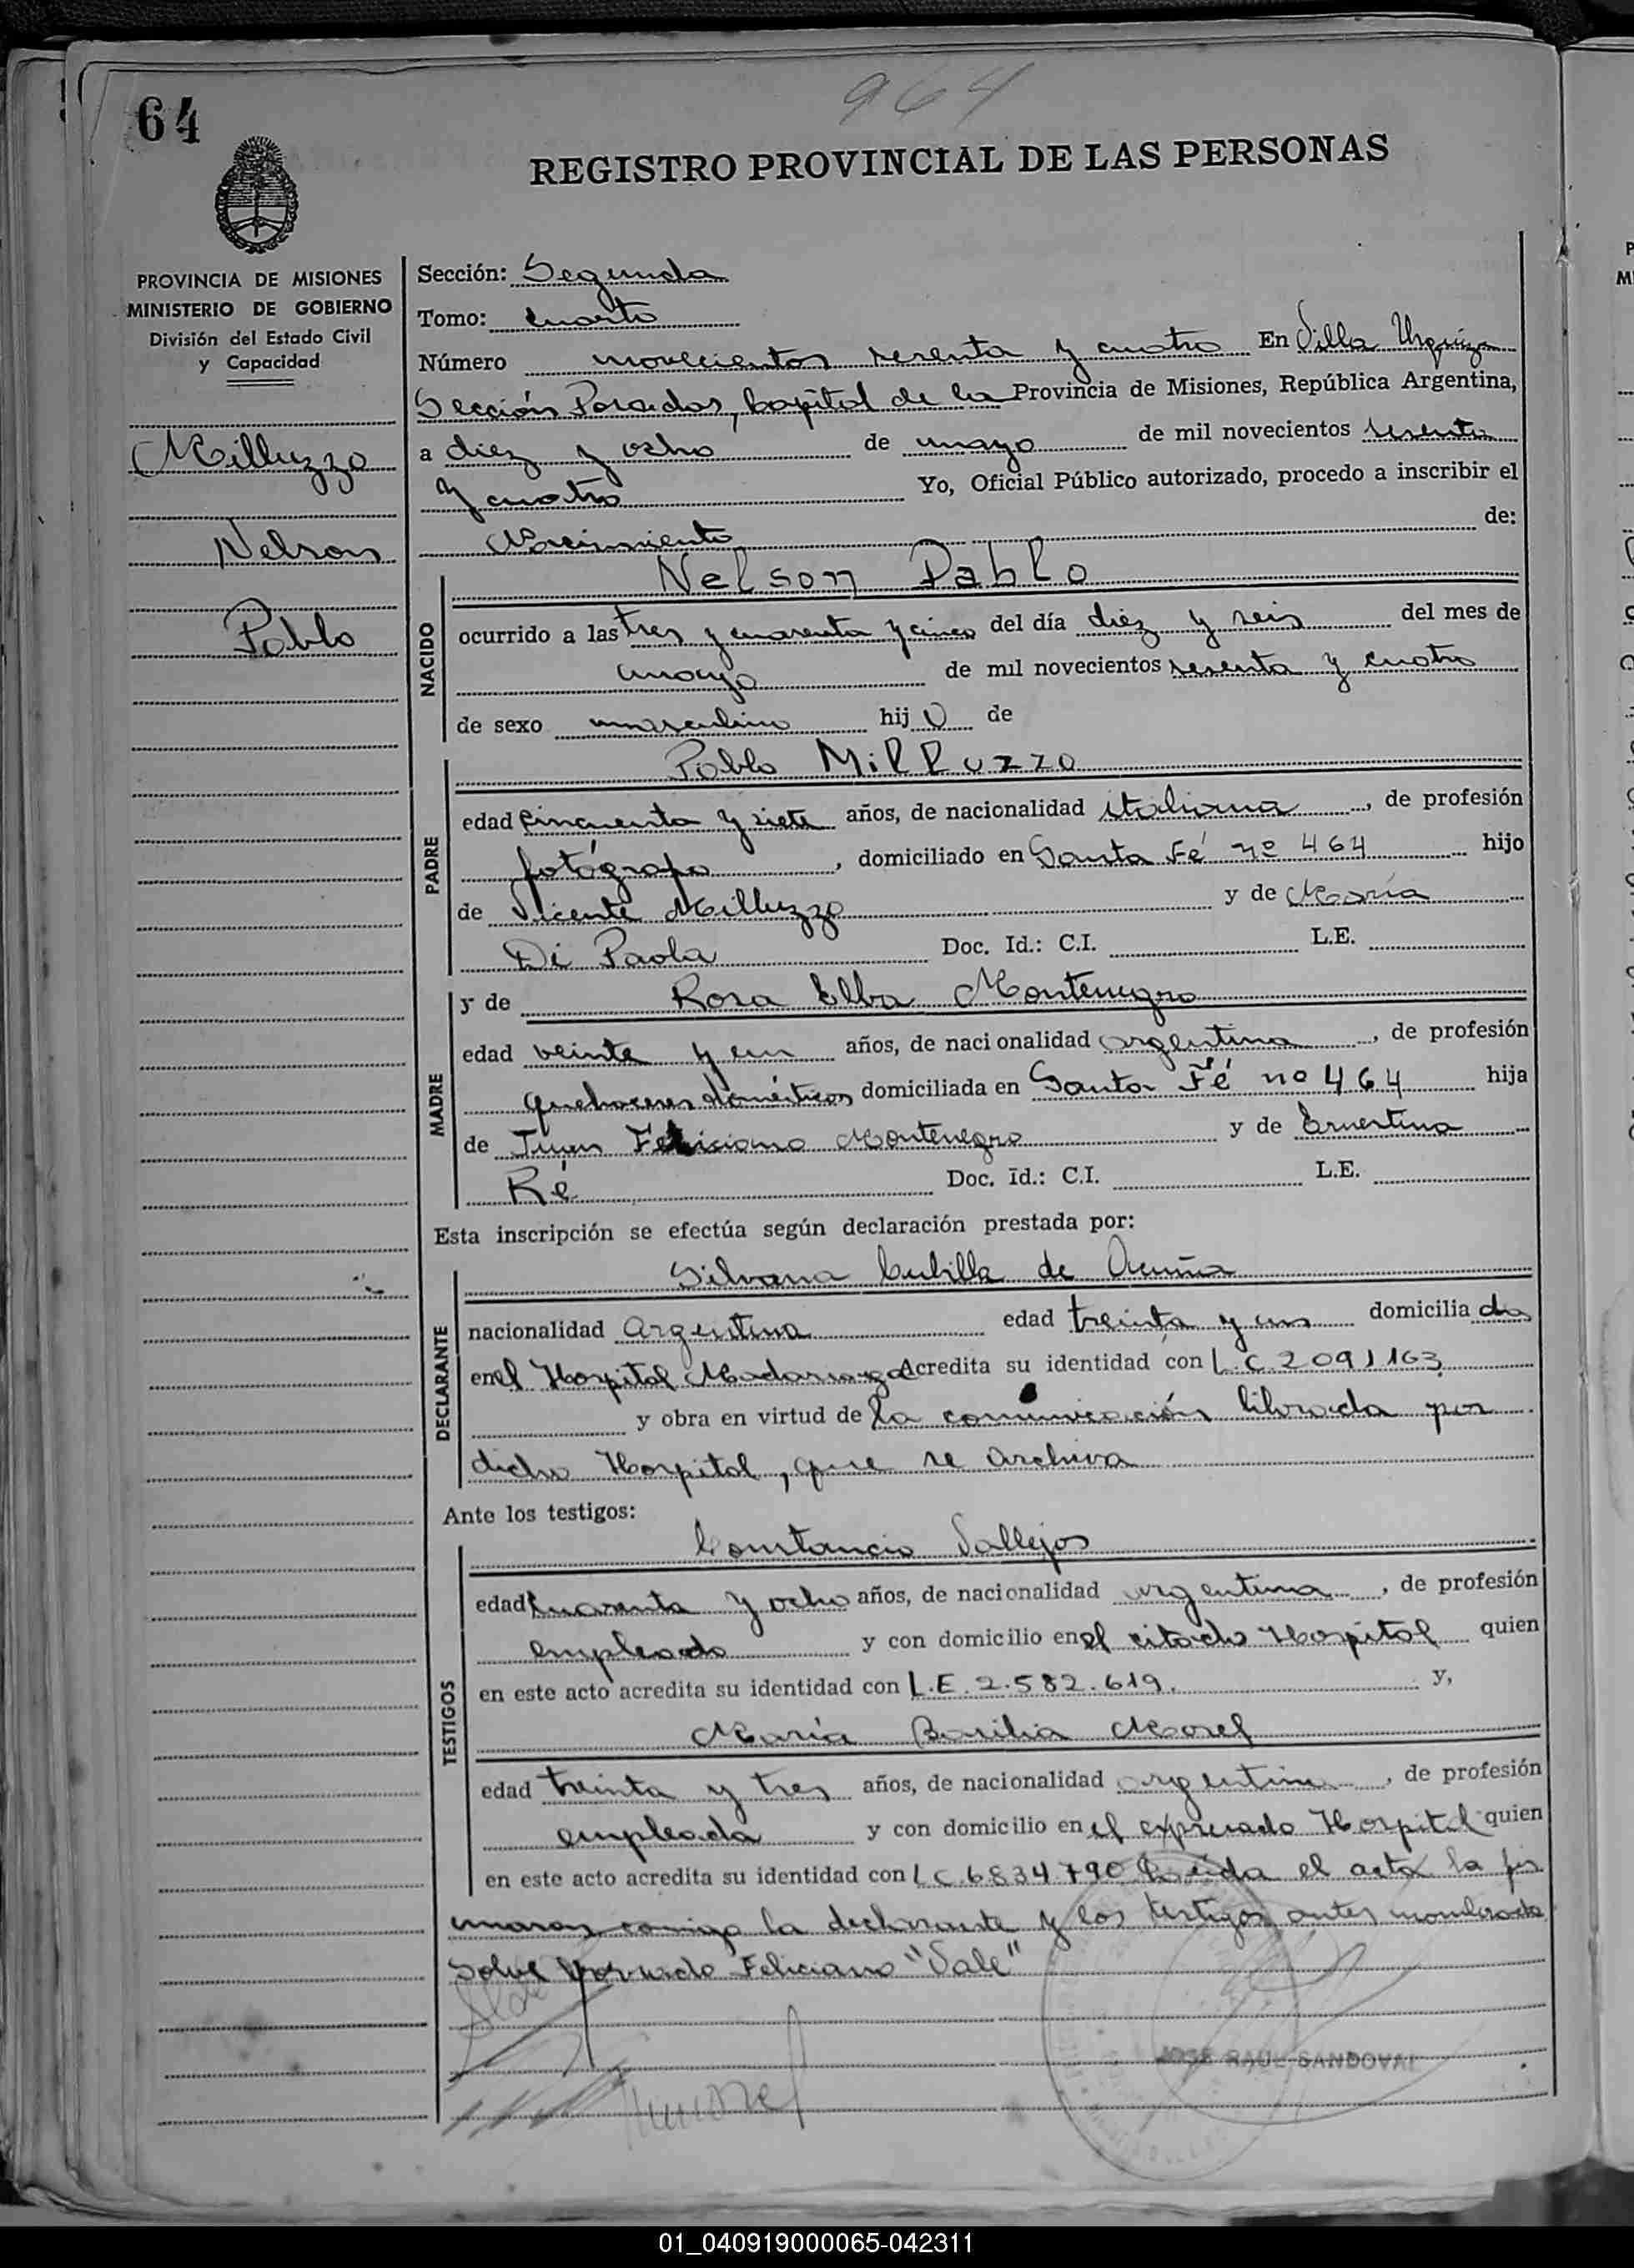 964
64
REGISTRO PROVINCIAL DE LAS PERSONAS
PROVINCIA DE MISIONES
MINISTERIO DE GOBIERNO
División del Estado Civil
y Capacidad
Milluzzo
Nelson
Pablo
Sección: Segunda
Tomo: Cuarto
Número novecientos sesenta y cuatro En Villa Urquiza
Sección Posadas, Capital de la Provincia de Misiones, República Argentina,
a diez y ocho de mayo de mil novecientos sesenta
y cuatro Yo, Oficial Público autorizado, procedo a inscribir el
Nacimiento de:
NACIDO
Nelson Pablo
ocurrido a las tres y cuarenta y cinco del día diez y seis del mes de
mayo de mil novecientos sesenta y cuatro
de sexo masculino hij o de
PADRE
Pablo Milluzzo
edad cincuenta y siete años, de nacionalidad italiana, de profesión
fotógrafo, domiciliado en Santa Fé nº 464 hijo
de Vicente Milluzzo y de María
Di Paola Doc. Id.: C.I. L.E.
MADRE
y de Rosa Elba Montenegro
edad veinte y un años, de nacionalidad argentina, de profesión
quehaceres domésticos domiciliada en Santa Fé nº 464 hija
de Juan Feliciano Montenegro y de Ernestina
Ré Doc. Id.: C.I. L.E.
Esta inscripción se efectúa según declaración prestada por:
DECLARANTE
Silvana Cubilla de Acuña
nacionalidad argentina edad treinta y un domicilia da
en el Hospital Madariaga Acredita su identidad con L.C. 2091163
y obra en virtud de la comunicación librada por
dicho Hospital, que se archiva
Ante los testigos:
TESTIGOS
Constancio Vallejos
edad cuarenta y ocho años, de nacionalidad argentina, de profesión
empleado y con domicilio en el citado Hospital quien
en este acto acredita su identidad con L.E. 2.582.619. y,
María Basilia Morel
edad treinta y tres años, de nacionalidad argentina, de profesión
empleada y con domicilio en el expresado Hospital quien
en este acto acredita su identidad con L C 6834790 Leída el acta la fir
maron conmigo la declarante y los testigos antes nombrados
Feliciano "Vale"
JOSE RAUL SANDOVAL
01_040919000065-042311